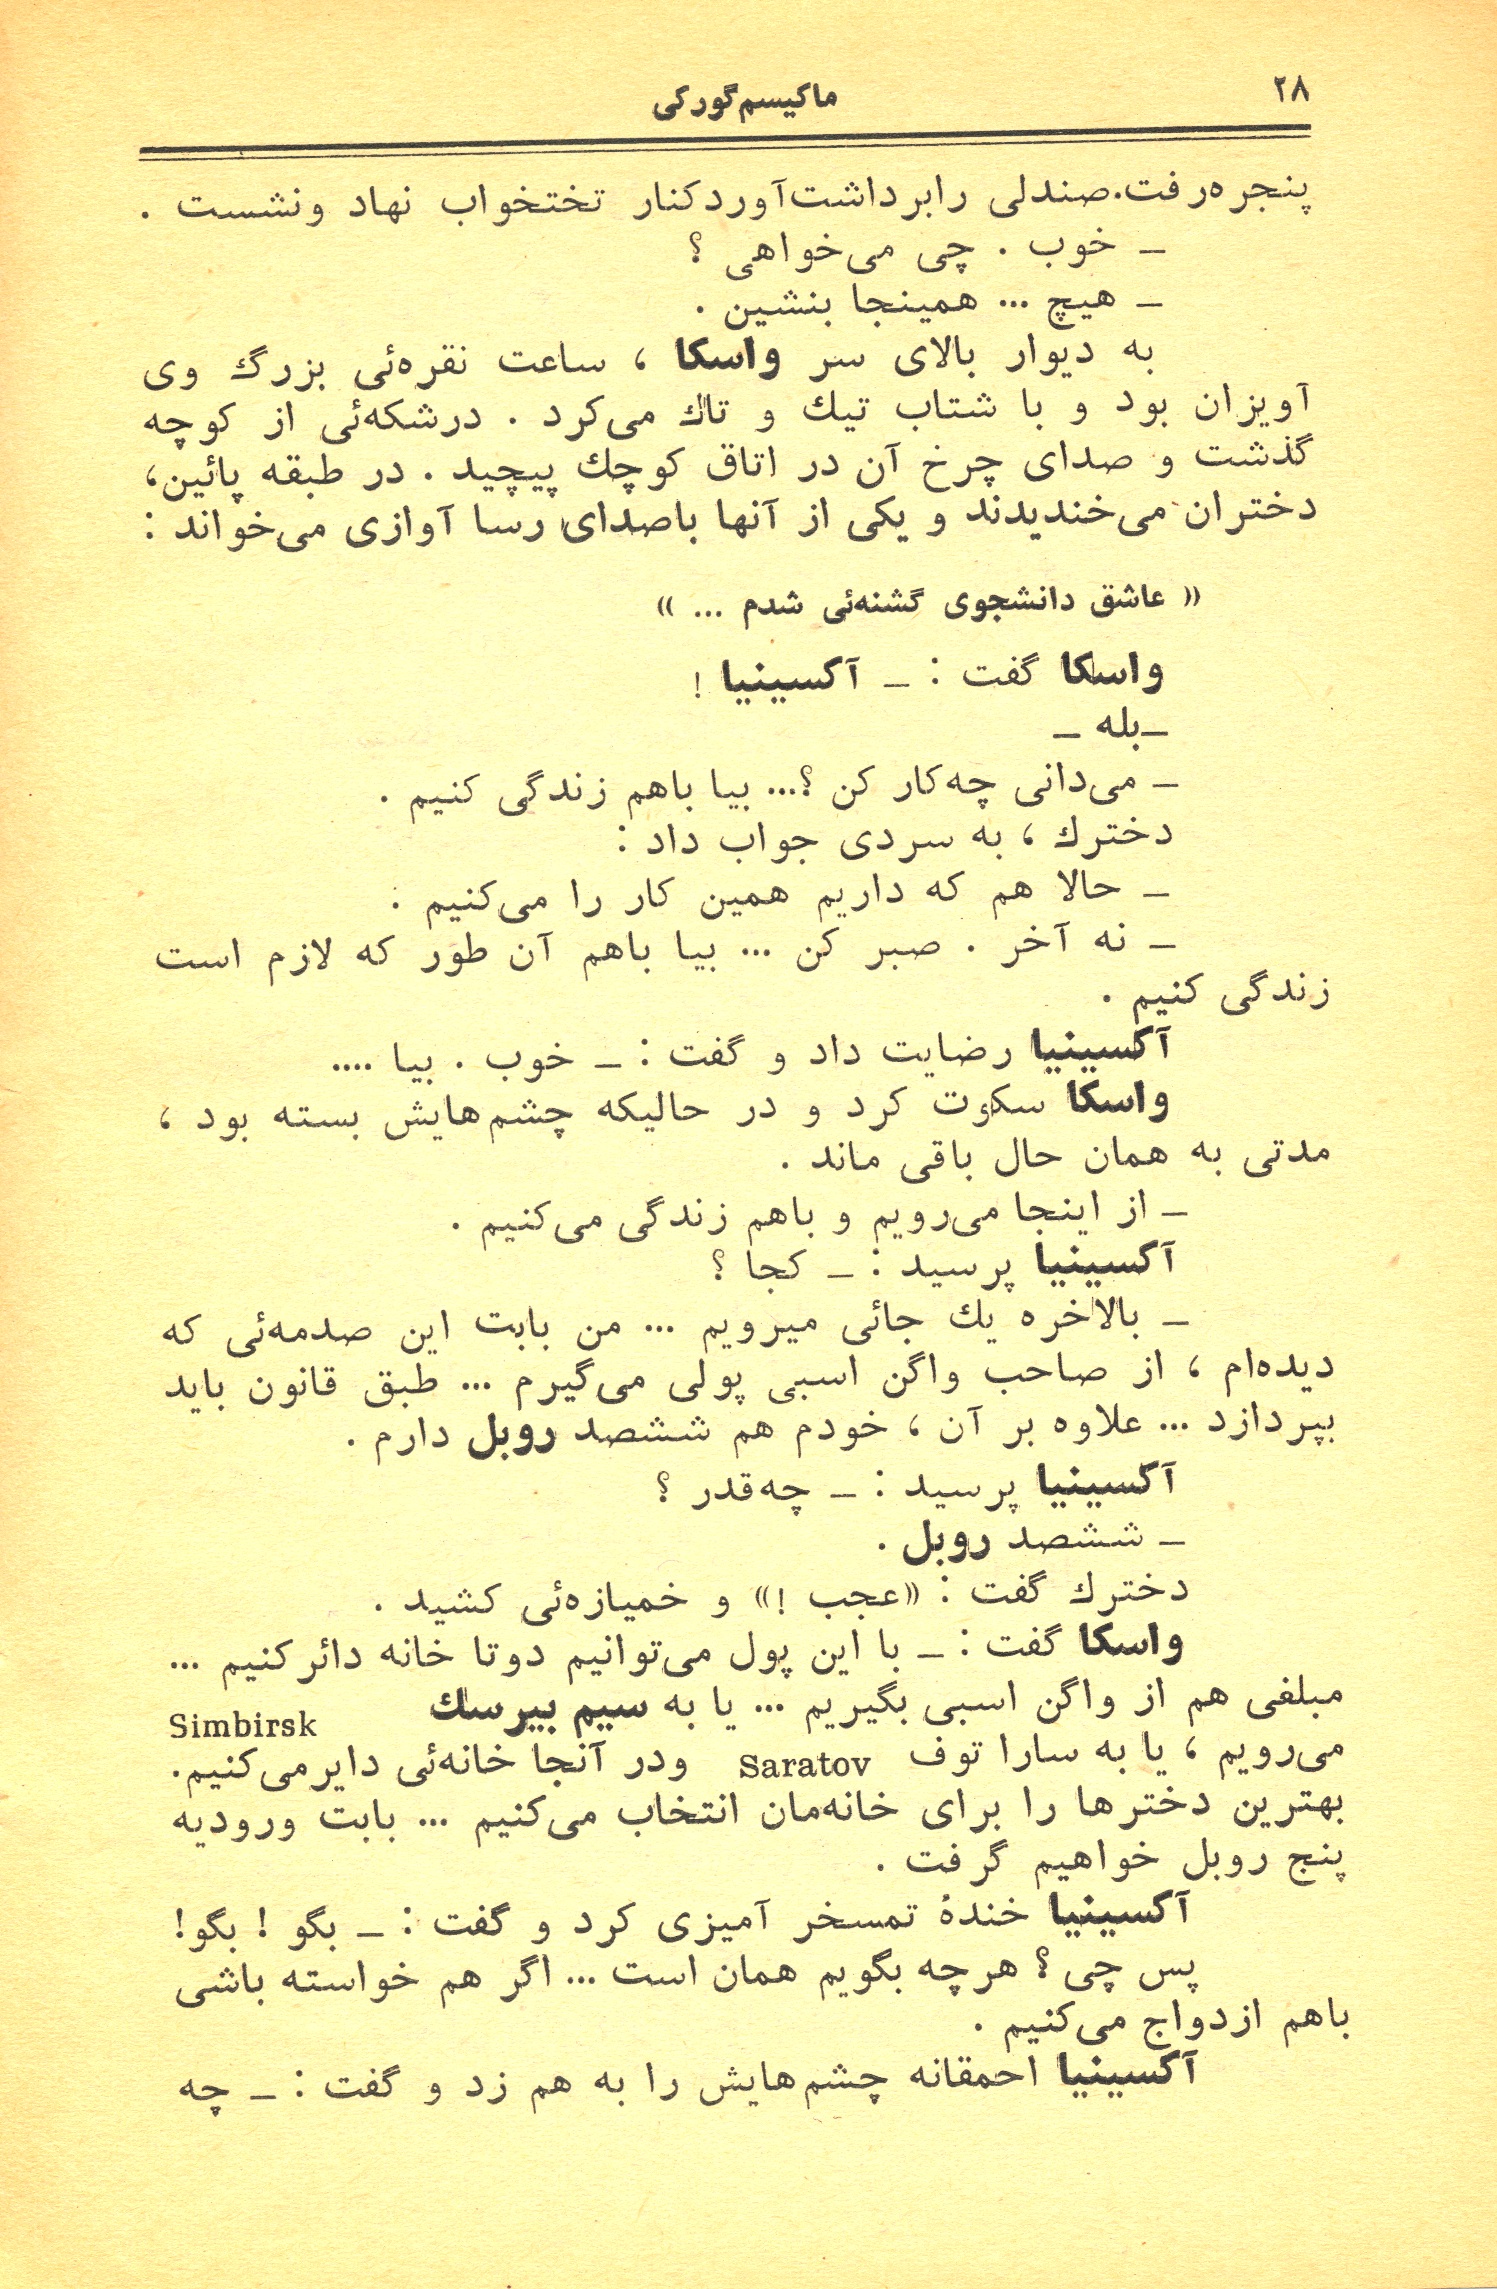 ۲۸
ماکیسم گورکی
پنجره رفت. صندلی را برداشت آورد کنار تختخواب نهاد و نشست .
ـ خوب . چی می‌خواهی ؟
ـ هیچ ... همینجا بنشین .
به دیوار بالای سر واسکا ، ساعت نقره‌ئی بزرگ وی
آویزان بود و با شتاب تیك و تاك می‌کرد . درشکه‌ئی از کوچه
گذشت و صدای چرخ آن در اتاق کوچك پیچید . در طبقه پائین،
دختران می‌خندیدند و یکی از آنها باصدای رسا آوازی می‌خواند :
« عاشق دانشجوی گشنه‌ئی شدم ... »
واسکا گفت : ـ آکسینیا !
ـ بله ـ
ـ می‌دانی چه‌کار کن ؟... بیا باهم زندگی کنیم .
دخترك ، به سردی جواب داد :
ـ حالا هم که داریم همین کار را می‌کنیم .
ـ نه آخر . صبر کن ... بیا باهم آن طور که لازم است
زندگی کنیم .
آکسینیا رضایت داد و گفت : ـ خوب . بیا ....
واسکا سکوت کرد و در حالیکه چشم‌هایش بسته بود ،
مدتی به همان حال باقی ماند .
ـ از اینجا می‌رویم و باهم زندگی می‌کنیم .
آکسینیا پرسید : ـ کجا ؟
ـ بالاخره یك جائی میرویم ... من بابت این صدمه‌ئی که
دیده‌ام ، از صاحب واگن اسبی پولی می‌گیرم ... طبق قانون باید
بپردازد ... علاوه بر آن ، خودم هم ششصد روبل دارم .
آکسینیا پرسید : ـ چه‌قدر ؟
ـ ششصد روبل .
دخترك گفت : «عجب !» و خمیازه‌ئی کشید .
واسکا گفت : ـ با این پول می‌توانیم دوتا خانه دائر کنیم ...
مبلغی هم از واگن اسبی بگیریم ... یا به سیم بیرسك Simbirsk
می‌رویم ، یا به سارا توف Saratov ودر آنجا خانه‌ئی دایر می‌کنیم.
بهترین دخترها را برای خانه‌مان انتخاب می‌کنیم ... بابت ورودیه
پنج روبل خواهیم گرفت .
آکسینیا خندهٔ تمسخر آمیزی کرد و گفت : ـ بگو ! بگو!
پس چی ؟ هرچه بگویم همان است ... اگر هم خواسته باشی
باهم ازدواج می‌کنیم .
آکسینیا احمقانه چشم‌هایش را به هم زد و گفت : ـ چه